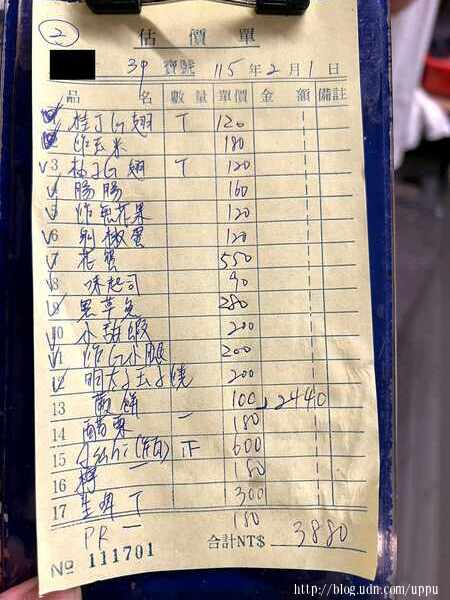 2
估價單
3P 寶號 115年2月1日
品名 數量 單價 金額 備註
桂丁G翅 T 120
炸玉米 180
3 桂丁G翅 T 120
腸腸 160
5 炸無花果 120
6 剝椒蛋 120
7 花蟹 550
8 味起司 90
9 黑草魚 280
10 小甜蝦 200
11 炸G小腿 200
12 明太子玉子燒 200
13 煎餅 100 2440
14 醋 一 180
15 正 600
16 一 180
17 生啤 T 300
PR 一 180
No 111701 合計NT$ 3880
http://blog.udn.com/uppu